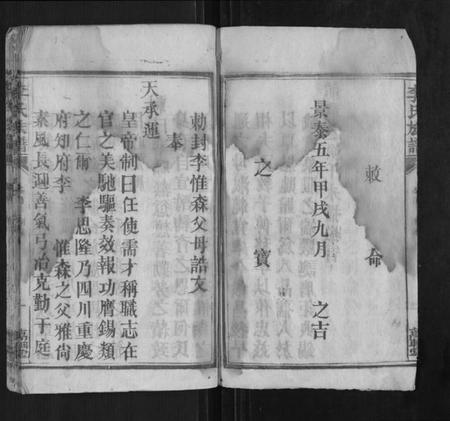 李氏族譜
敕
命
景泰五年甲戌九月 之吉
之 寶
敕封李惟森父母誥文
奉
天承運
皇帝制曰任使需才稱職志在
官之美馳驅奏效報功膺錫類
之仁爾 李思隆乃四川重慶
府知府李 惟森之父雅尚
素風長迎善氣弓冶克勤于庭
李氏族譜